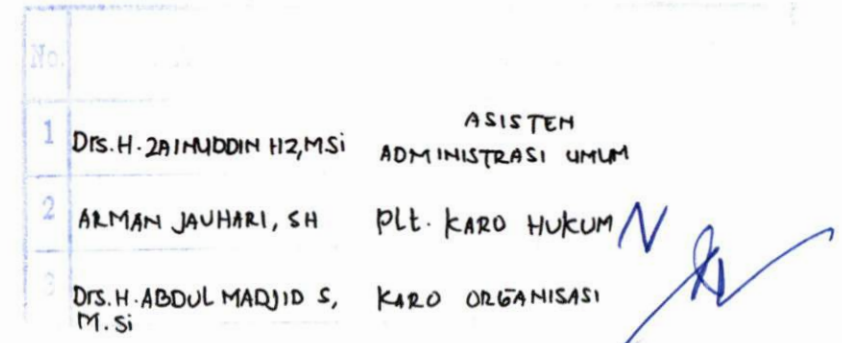 No.
ASISTEN
1 Drs. H. ZAINUDDIN HZ, MSi ADMINISTRASI UMUM
2 ARMAN JAUHARI, SH Plt. KARO HUKUM
3 Drs. H. ABDUL MADJID S, KARO ORGANISASI
M. Si